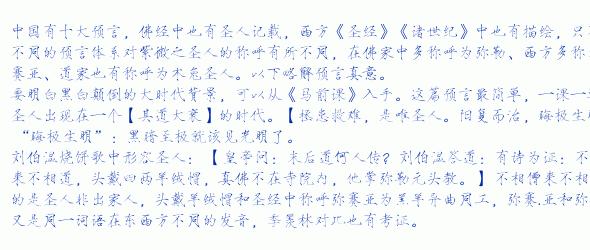 中国有十大预言，佛经中也有圣人记载，西方《圣经》《诸世纪》中也有描绘，只
不同的预言体系对紫微之圣人的称呼有所不同，在佛家中多称呼为弥勒、西方多称
赛亚、道家也有称呼为木兔圣人。以下略解预言真意。
要明白黑白颠倒的大时代背景，可以从《马前课》入手。这篇预言最简单，一课一
圣人出现在一个【其道大衰】的时代。【拯患救难，是唯圣人。阳复而治，晦极生
“晦极生明”：黑暗至极就该见光明了。
刘伯温烧饼歌中形容圣人：【皇帝问：末后道何人传？刘伯温答道：有诗为证：不
来不相道，头戴四两羊绒帽，真佛不在寺院内，他掌弥勒元头教。】不相僧来不相
的是圣人非出家人，头戴羊绒帽和圣经中称呼弥赛亚为黑羊异曲同工，弥赛.亚和弥
又是同一词语在东西方不同的发音，季羡林对此也有考证。